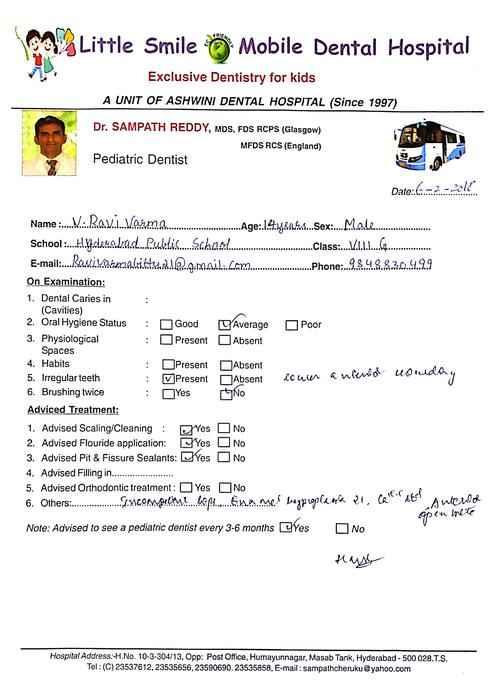 Little Smile ECO FRIENDLY Mobile Dental Hospital
Exclusive Dentistry for kids
A UNIT OF ASHWINI DENTAL HOSPITAL (Since 1997)
Dr. SAMPATH REDDY, MDS, FDS RCPS (Glasgow)
MFDS RCS (England)
Pediatric Dentist
Date: 6-2-2018
Name: V. Ravi Varma Age: 14 years Sex: Male
School: Hyderabad Public School Class: VIII G
E-mail: Ravivarmabittu21@gmail.com Phone: 9848830499
On Examination:
1. Dental Caries in :
(Cavities)
2. Oral Hygiene Status : Good Average Poor
3. Physiological : Present Absent
Spaces
4. Habits : Present Absent
5. Irregular teeth : Present Absent lower anterior crowding
6. Brushing twice : Yes No
Adviced Treatment:
1. Advised Scaling/Cleaning : Yes No
2. Advised Flouride application: Yes No
3. Advised Pit & Fissure Sealants: Yes No
4. Advised Filling in
5. Advised Orthodontic treatment : Yes No
6. Others: Incompetent lips, Enamel hypoplasia 21, Anterior
open bite
Note: Advised to see a pediatric dentist every 3-6 months Yes No
Hospital Address:-H.No. 10-3-304/13, Opp: Post Office, Humayunnagar, Masab Tank, Hyderabad - 500 028.T.S.
Tel : (C) 23537612, 23535656, 23590690, 23535858, E-mail : sampathcheruku@yahoo.com